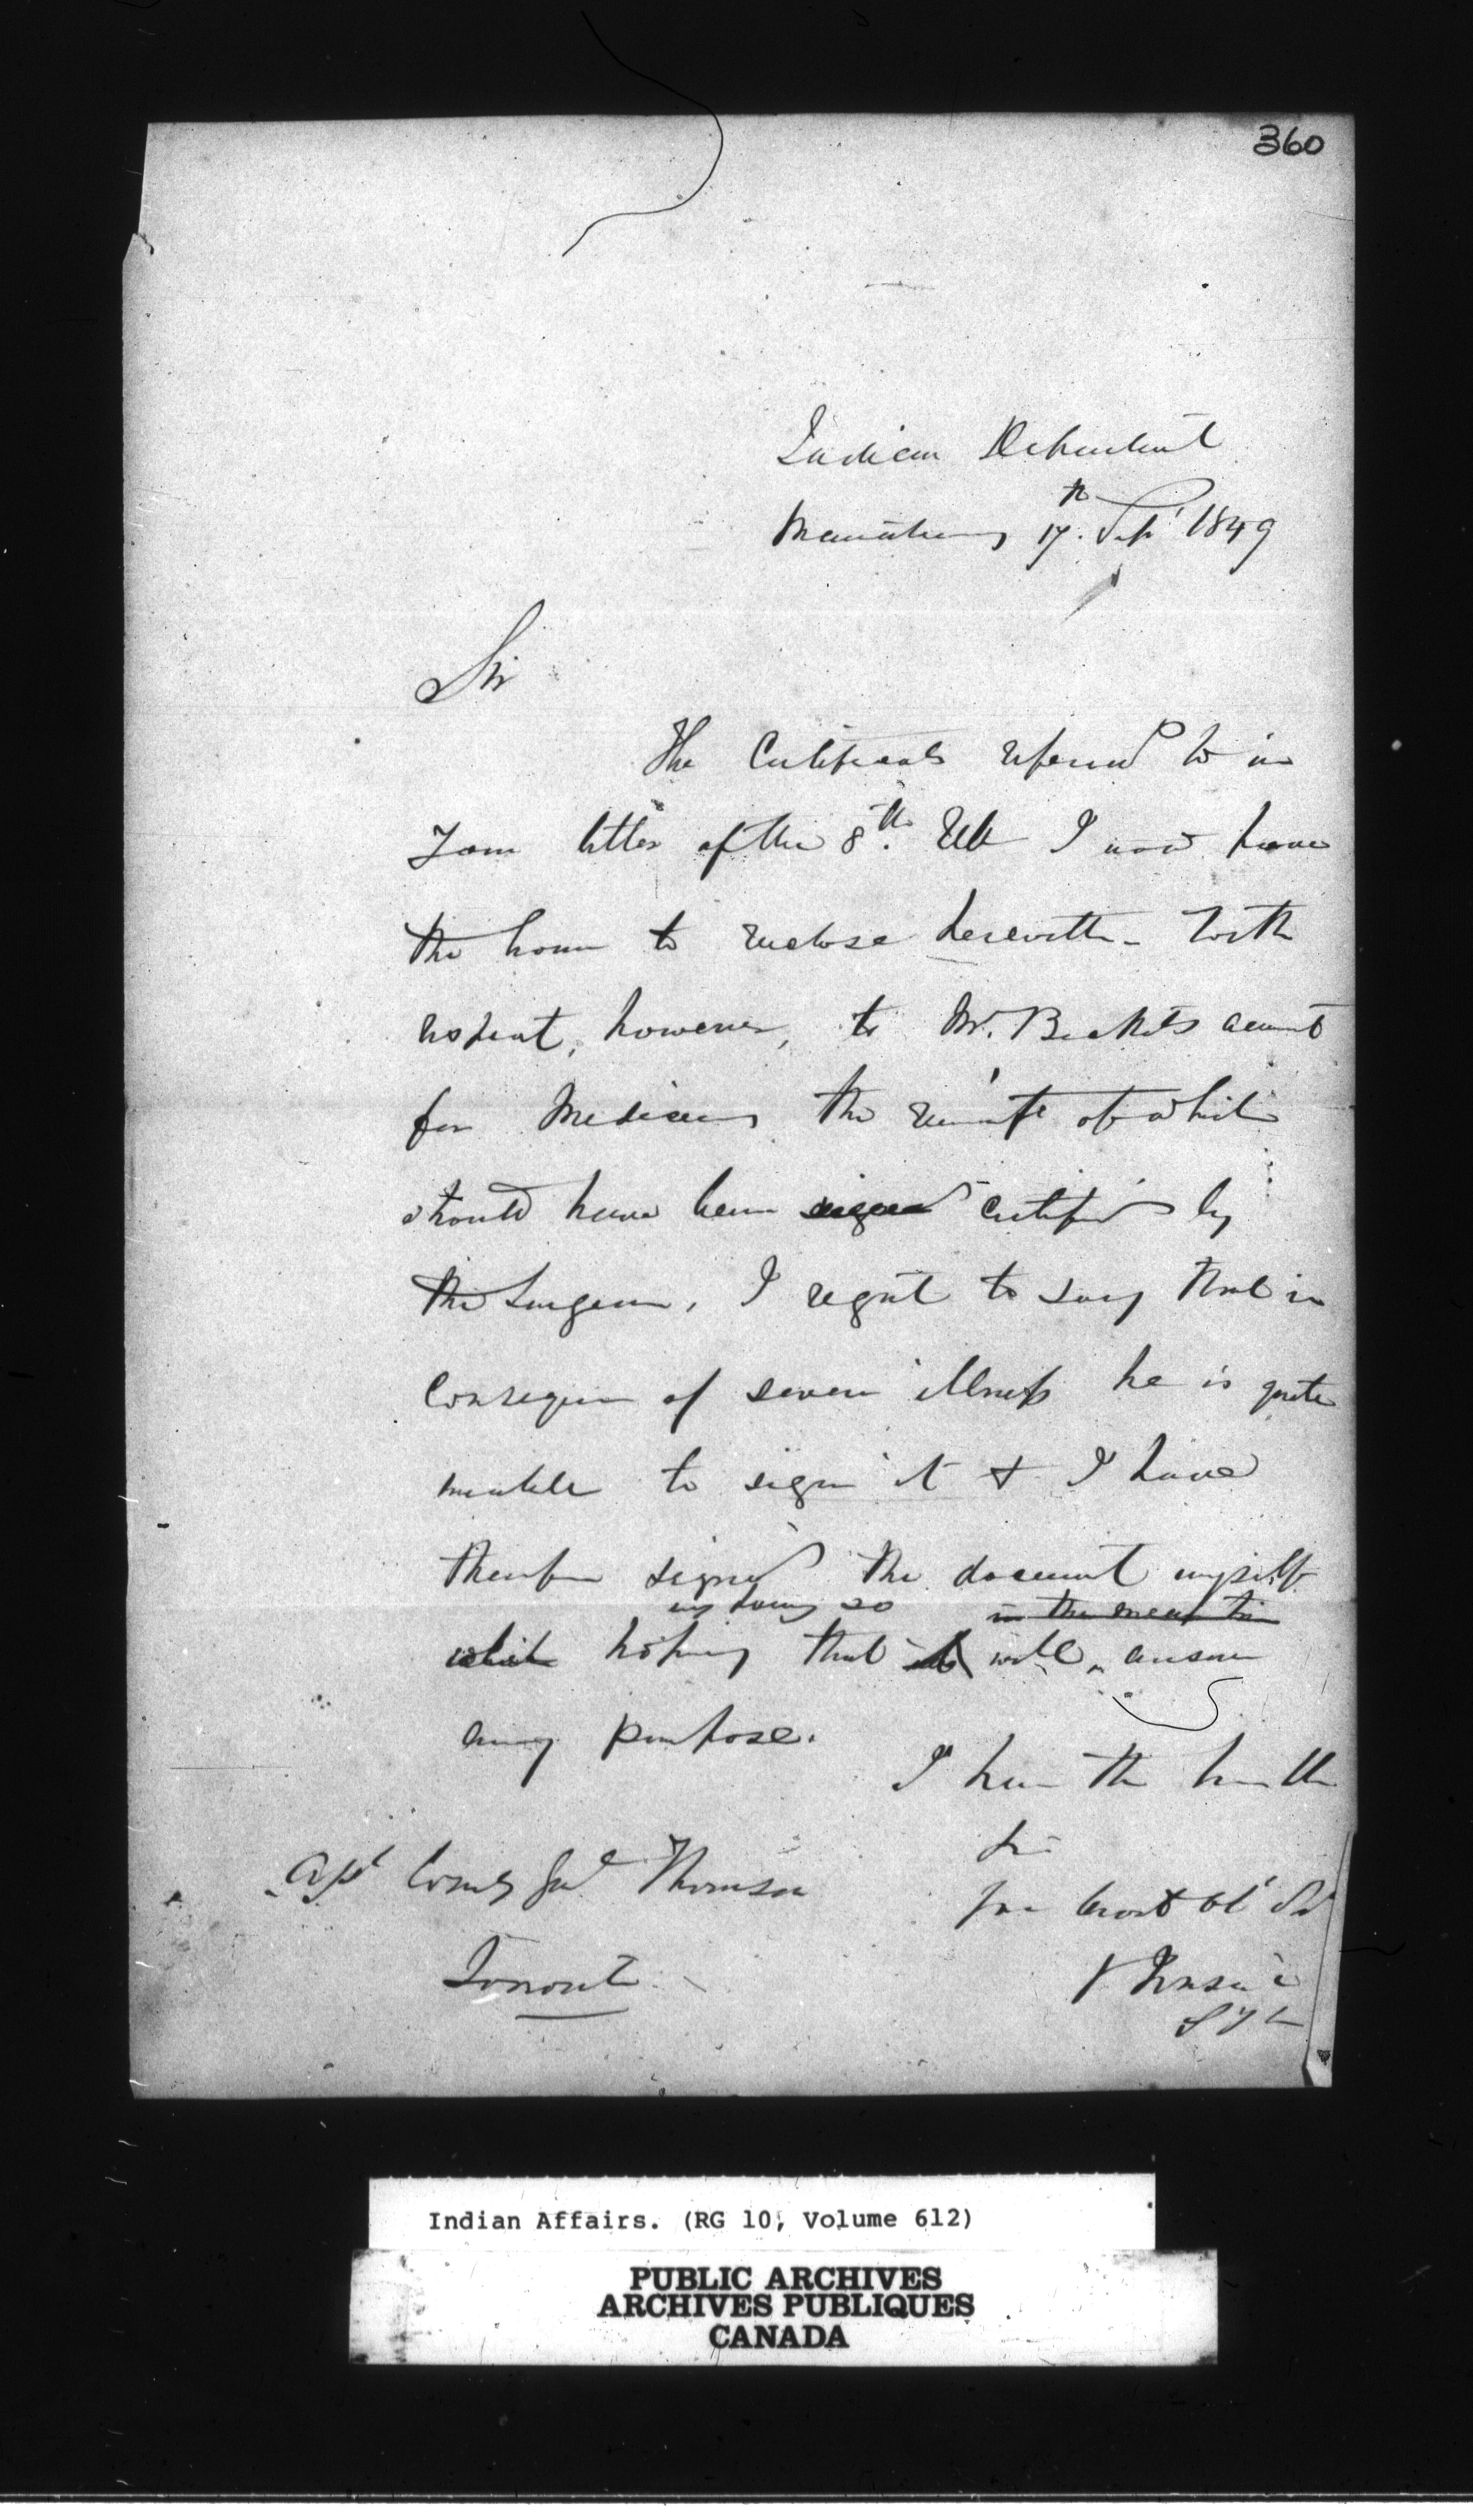 360
Indian Department
Manitowaning 17th. Sept 1849
Sir
The Certificates referred to in
Your letter of the 8th. Ult I now have
the honor to enclose herewith - With
respect, however, to Mr. Becketts account
for Medicines the receipt of which
should have been signed certified by
the Surgeon, I regret to say that in
consequence of severe illness he is quite
unable to sign it & I have
therefore signed the document myself
my doing so in the mean time
which hoping that it will answer
any purpose.
I have the honor &c
Sir
Your most Ob' St
Asst Comy Genl Thomson
Toronto
Indian Affairs. (RG 10, Volume 612)
PUBLIC ARCHIVES
ARCHIVES PUBLIQUES
CANADA